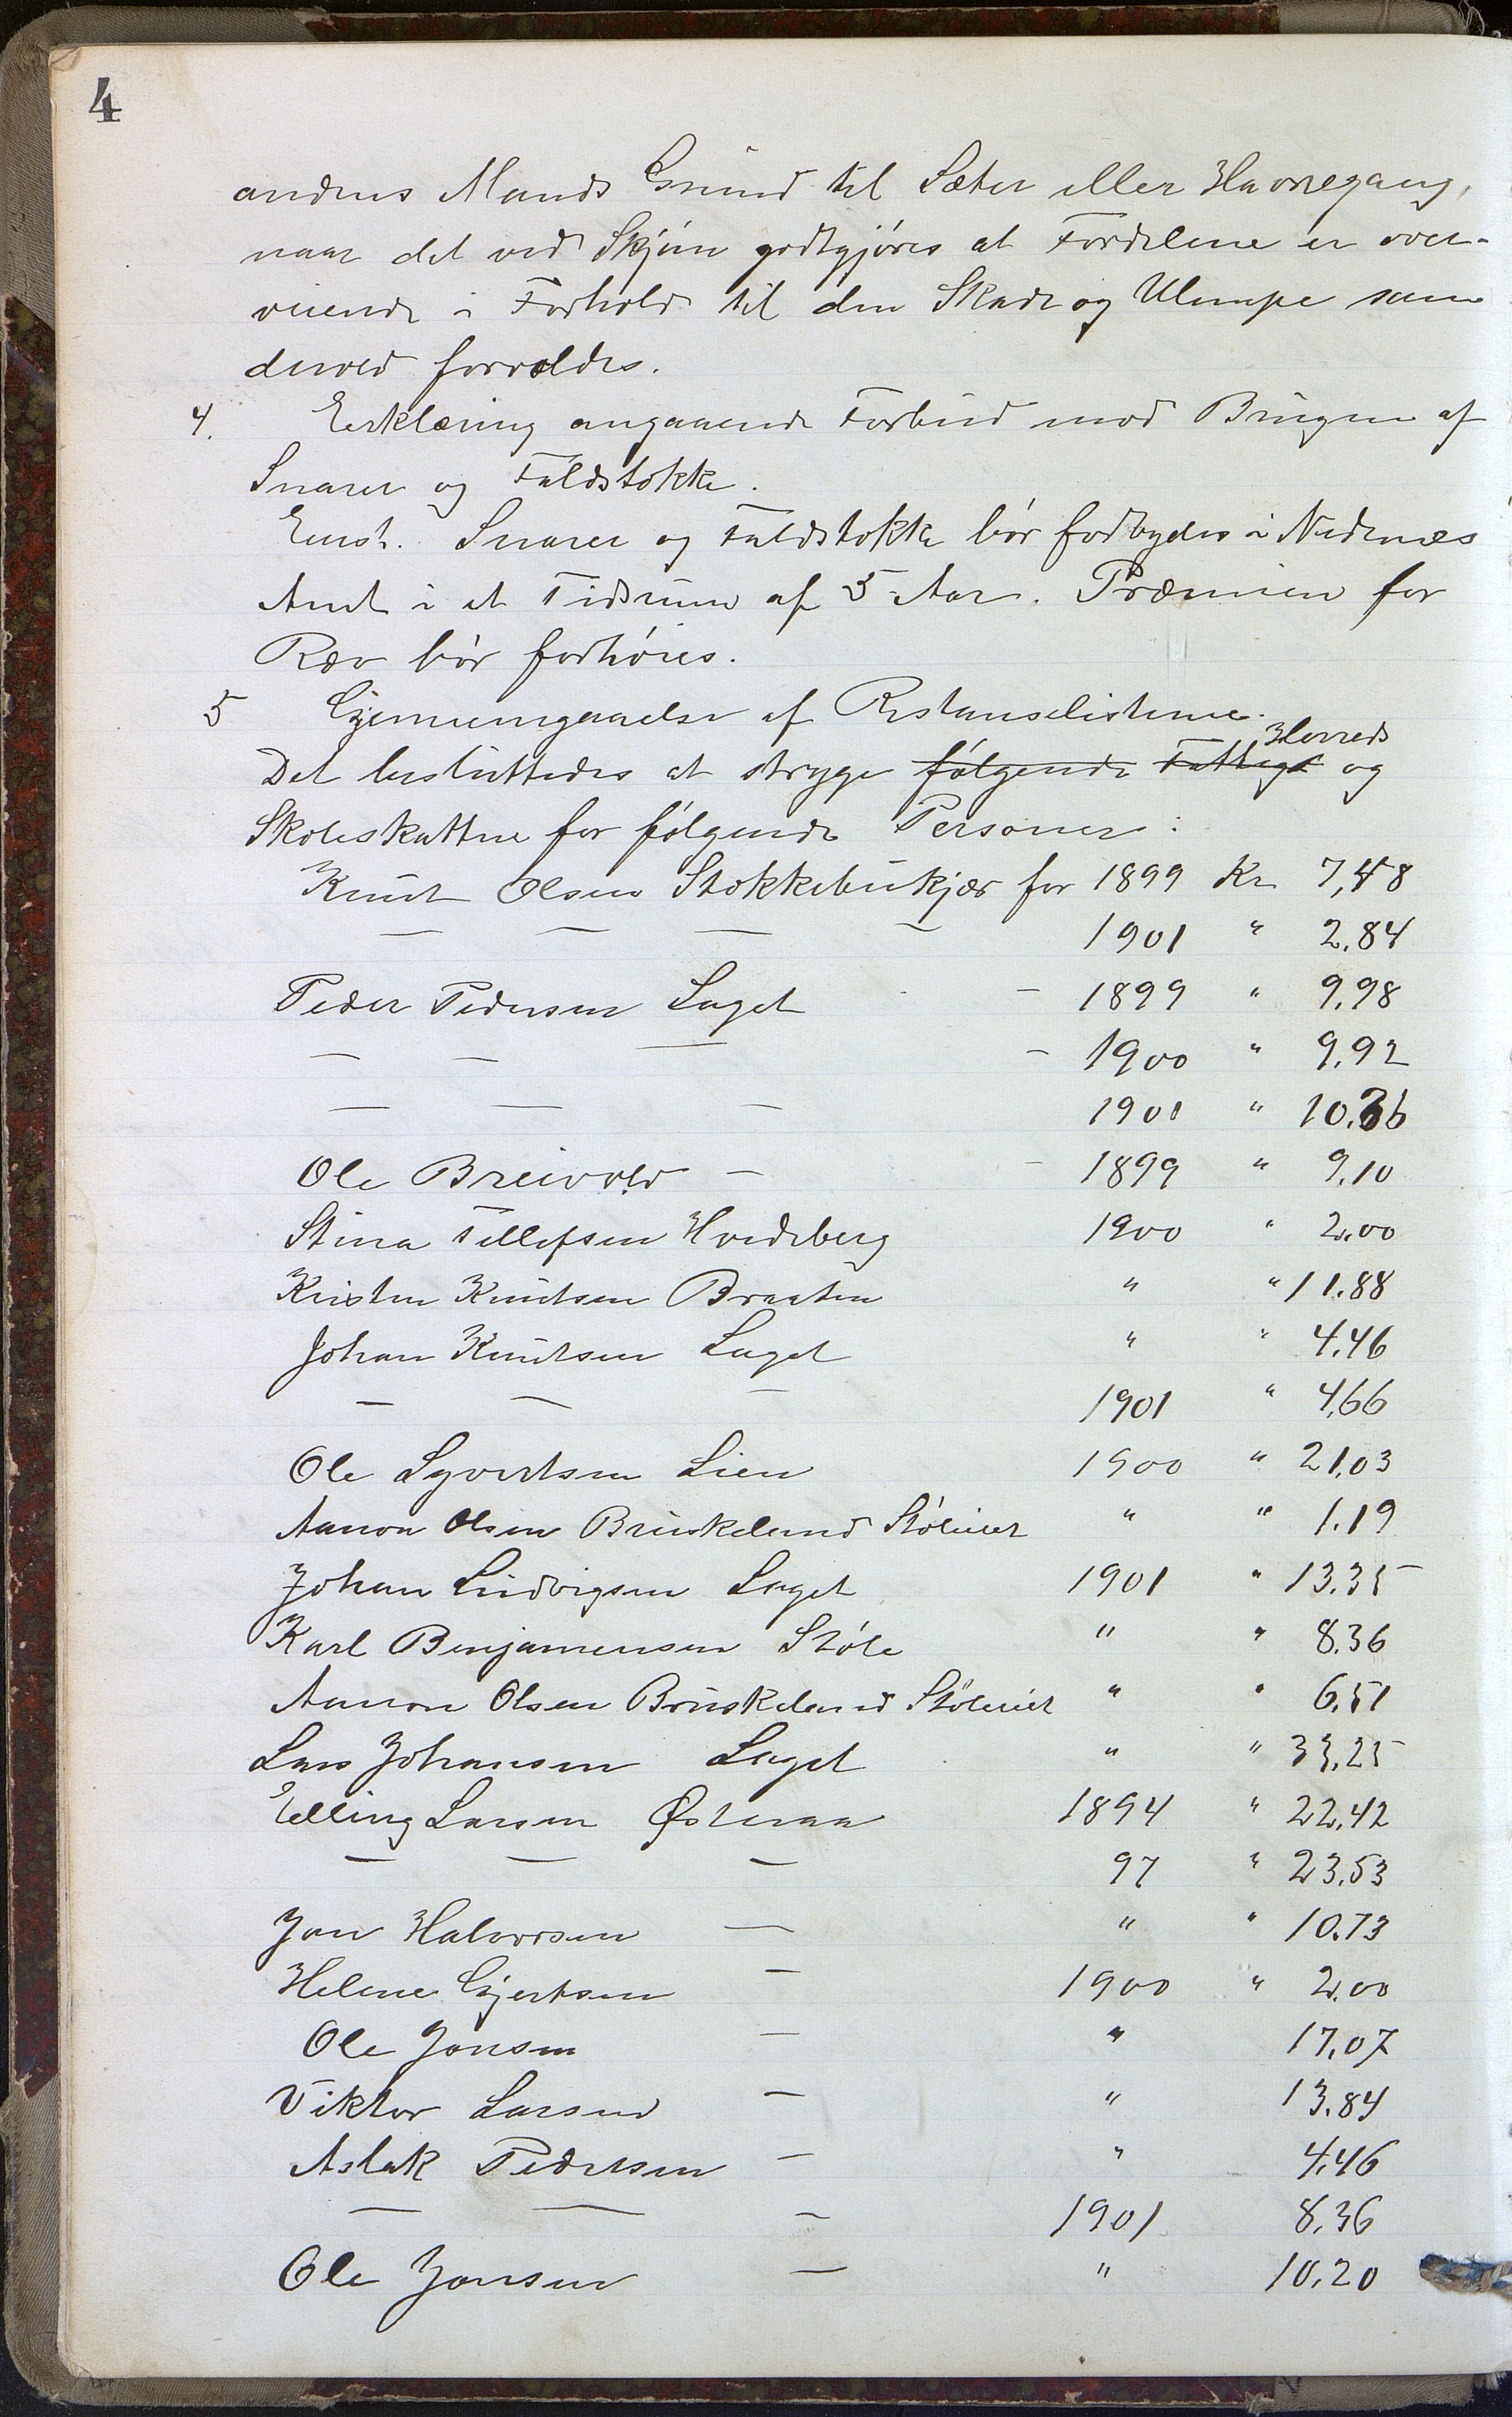 4
andens Mands Grund til Sæter eller Havnegang,
naar det ved Skjøn godtgjøres at Fordelene er over-
veiende i Forhold til den Skade og Ulempe som
derved forvoldes.
4. Erklæring angaaende Forbud mod Brugen af
Snarer og Faldstokke.
Enst. Snarer og Faldstokke bør forbydes i Nedenæs
Amt i et Tidsrum af 5 Aar. Præmien for
Ræv bør forhøies.
5 Gjennemgaaelse af Restanselisterne.
Herreds
Det besluttedes at stryge følgende Fattige og
Skoleskatten for følgende Personer:
Knut Olsen Stokkebukjær for 1899 Kr 7,48
— — — — 1901 " 2.84
Peder Pedersen Laget - 1899 " 9.98
— — — - 1900 " 9.92
— — — 1901 " 10.36
Ole Breivold — - 1899 " 9.10
Stina Tellefsen Hvedeberg 1900 " 2.00
Kristen Knutsen Braaten " " 11.88
Johan Knutsen Laget " " 4.46
— — — 1901 " 4,66
Ole Syvertsen Lien 1900 " 21,03
Aanon Olsen Bruskeland Støleviet " " 1.19
Johan Ludvigsen Laget 1901 " 13.35
Karl Benjamensen Støle " " 8.36
Aanon Olsen Bruskeland Støleviet " " 6.51
Lars Johansen Laget " " 33,25
Elling Larsen Østeraa 1894 " 22,42
— — — 97 " 23,53
Jon Halvorsen — " " 10.73
Helene Gjertsen — 1900 " 2.00
Ole Jonsen — " 17,07
Viktor Larsen — " 13.84
Aslak Pedersen — " 4.46
— — — 1901 8.36
Ole Jonsen — " 10,20